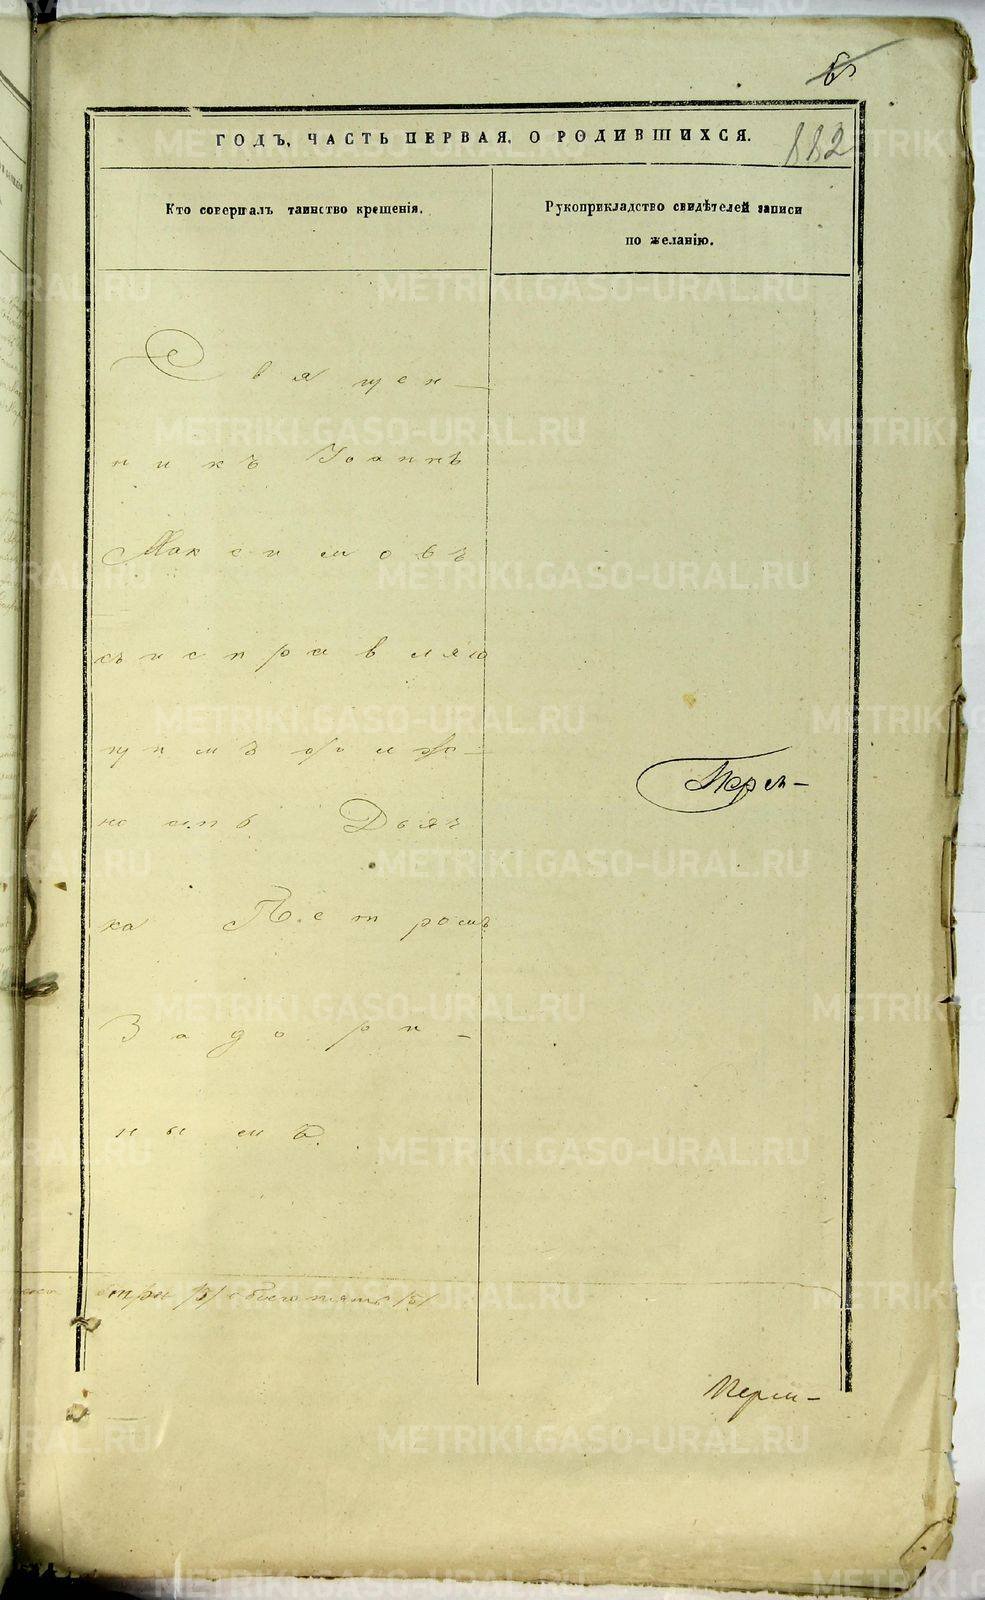 5
ГОДЪ, ЧАСТЬ ПЕРВАЯ, О РОДИВШИХСЯ.
882
Кто совершалъ таинство крещенія.
Рукоприкладство свидѣтелей записи
по желанію.
Священ-
никъ Іоаннъ
Максимовъ
съ исправляю
щимъ долж-
ность Дьяч
ка Петромъ
Задори-
нымъ.
Перм-
три /3/ обоего пять /5/
Перм-
METRIKI.GASO-URAL.RU